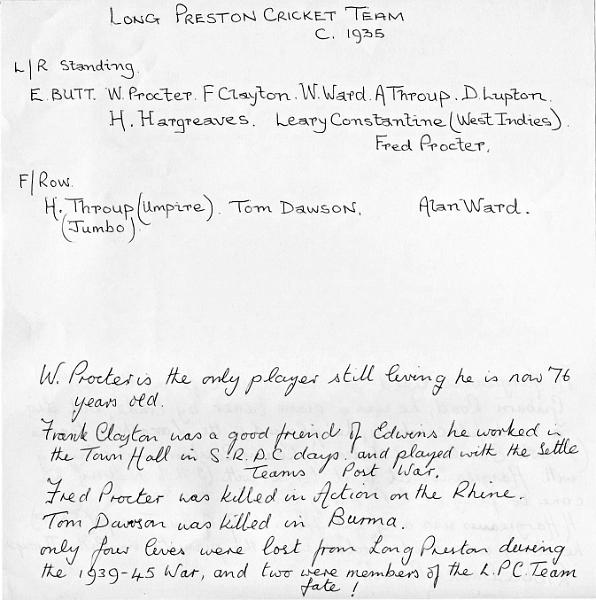 LONG PRESTON CRICKET TEAM
C. 1935
L/R Standing.
E. BUTT. W. Procter. F Clayton. W. Ward. A Throup. D. Lupton.
H. Hargreaves. Leary Constantine (West Indies).
Fred Procter.
F/Row.
H. Throup (Umpire). Tom Dawson. Alan Ward.
(Jumbo)
W. Procter is the only player still living he is now '76
years old.
Frank Clayton was a good friend of Edwins he worked in
the Town Hall in S.R.D.C days. and played with the Settle
Teams Post War.
Fred Procter was killed in Action on the Rhine.
Tom Dawson was killed in Burma.
only four lives were lost from Long Preston during
the 1939-45 War, and two were members of the L.P.C. Team
fate!